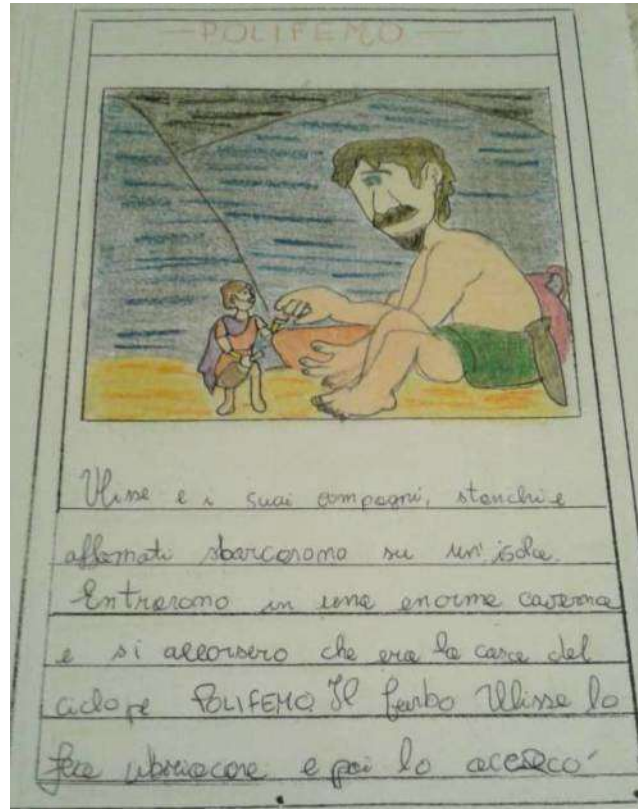 —POLIFEMO—
Ulisse e i suoi compagni, stanchi e
affamati sbarcarono su un'isola.
Entrarono in una enorme caverna
e si accorsero che era la casa del
ciclope POLIFEMO Il furbo Ulisse lo
fece ubriacare e poi lo accecò